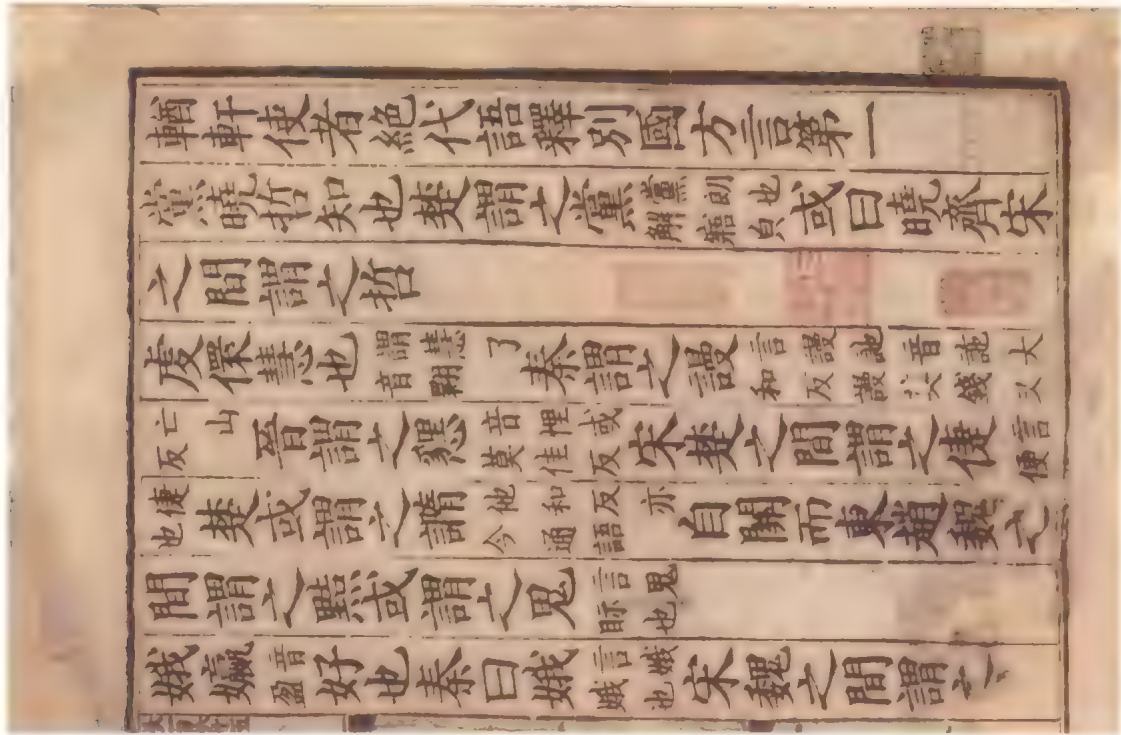 輶軒使者絶代語釋別國方言第一
黨曉哲知也楚謂之黨黨朗也解寤皃或曰曉齊宋
之間謂之哲
虔儇慧也謂慧了音翾秦謂之謾言謾訑音訑大和反謾莫錢又
亡山反晉謂之音悝或莫佳反宋楚之間謂之倢言便
倢也楚或謂之䜏他和反亦今通語自關而東趙魏之
間謂之黠或謂之鬼言鬼眎也
娥㜲音盈好也秦曰娥言娥娥也宋魏之間謂之